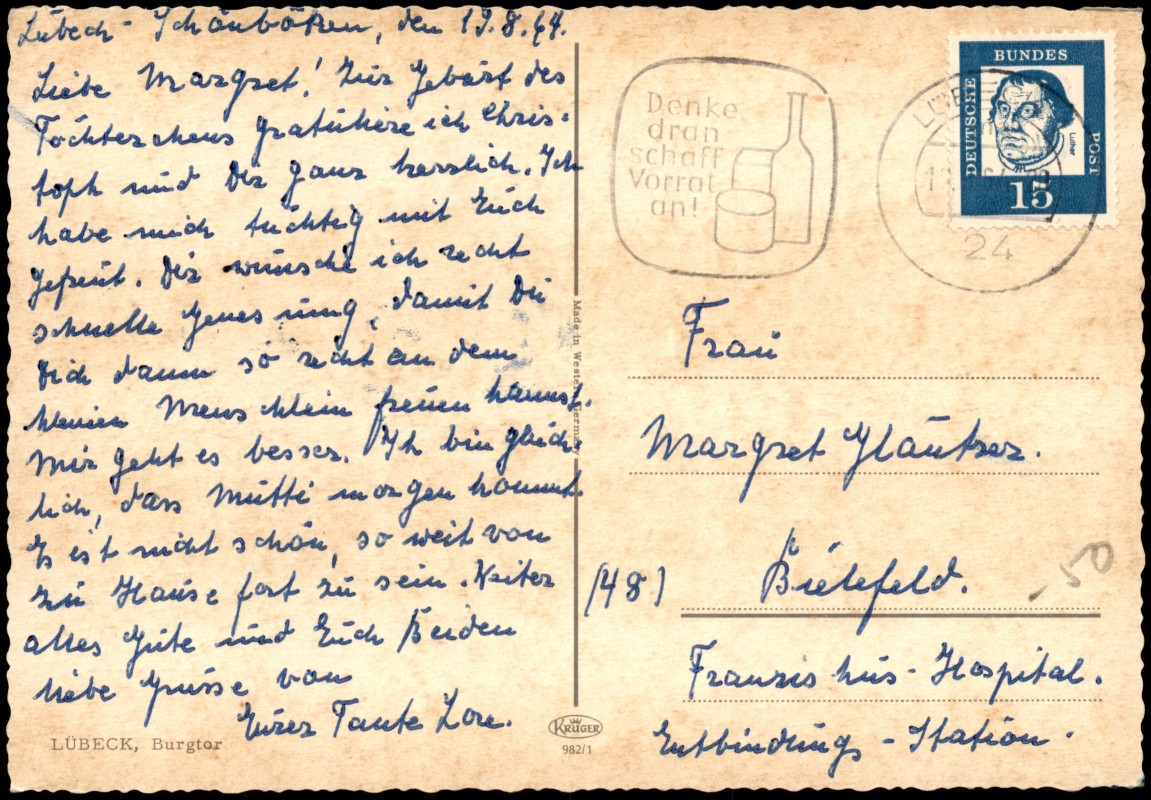 Lübeck-Schönböken, den 19.8.64.
Liebe Margret! Zur Geburt des
Töchterchens gratuliere ich Chris-
toph und Dir ganz herzlich. Ich
habe mich tüchtig mit Euch
gefreut. Dir wünsche ich recht
schnelle Genesung, damit Du
Dich dann so recht an dem
kleinen Menschlein freuen kannst.
Mir geht es besser. Ich bin glück-
lich, dass Mutti morgen kommt.
Es ist nicht schön, so weit von
zu Hause fort zu sein. Weiter
alles Gute und Euch Beiden
liebe Grüsse von
Eurer Tante Lore.
LÜBECK, Burgtor
Made in Western Germany
KRÜGER
982/1
Denke
dran
schaff
Vorrat
an!
DEUTSCHE
BUNDES
POST
Luther
15
24
Frau
Margret Gläntzer.
(48) Bielefeld.
Franziskus-Hospital.
Entbindungs-Station.
50